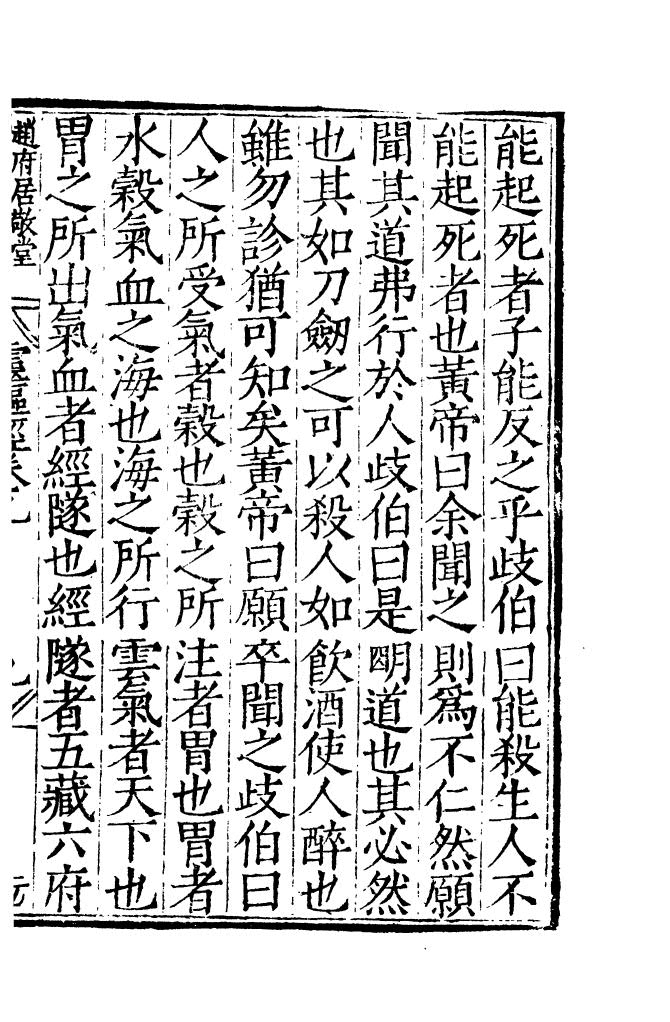 能起死者子能反之乎歧伯曰能殺生人不
能起死者也黃帝曰余聞之則爲不仁然願
聞其道弗行於人歧伯曰是明道也其必然
也其如刀劒之可以殺人如飲酒使人醉也
雖勿診猶可知矣黃帝曰願卒聞之歧伯曰
人之所受氣者穀也穀之所注者胃也胃者
水穀氣血之海也海之所行雲氣者天下也
胃之所出氣血者經隧也經隧者五藏六府
趙府居敬堂 靈樞經卷九